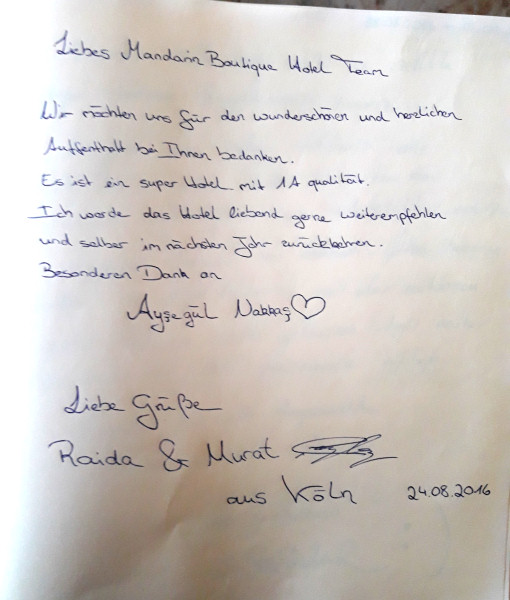 Liebes Mandarin Boutique Hotel Team
Wir möchten uns für den wunderschönen und herzlichen
Auffenthalt bei Ihnen bedanken.
Es ist ein super Hotel mit 1A qualität.
Ich werde das Hotel liebend gerne weiterempfehlen
und selber im nächsten Jahr zurückkehren.
Besonderen Dank an
Ayşegül Nakkaş
Liebe Grüße
Raida & Murat
aus Köln 24.08.2016